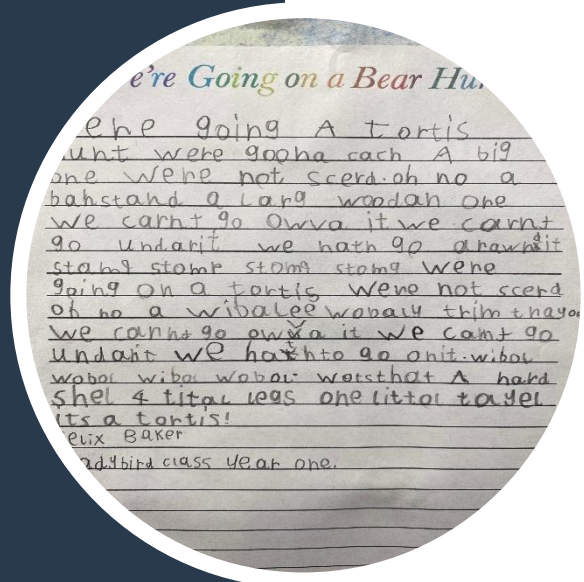 e're Going on a Bear Hu
ere going A tortis
unt were goona cach A big
one were not scerd.oh no a
bahstand a larg woodan one
we carnt go owva it we carnt
go undarit we hath go arawndit
stamp stomp stomp stomp were
going on a tortis were not scerd
oh no a wibalee wobaly trim
we carnt go owva it we carnt go
undarit we hath to go onit.wibol
wobol wibol wobol wotsthat A hard
shel 4 tital legs one littol tayel
its a tortis!
elix Baker
adybird class year one.